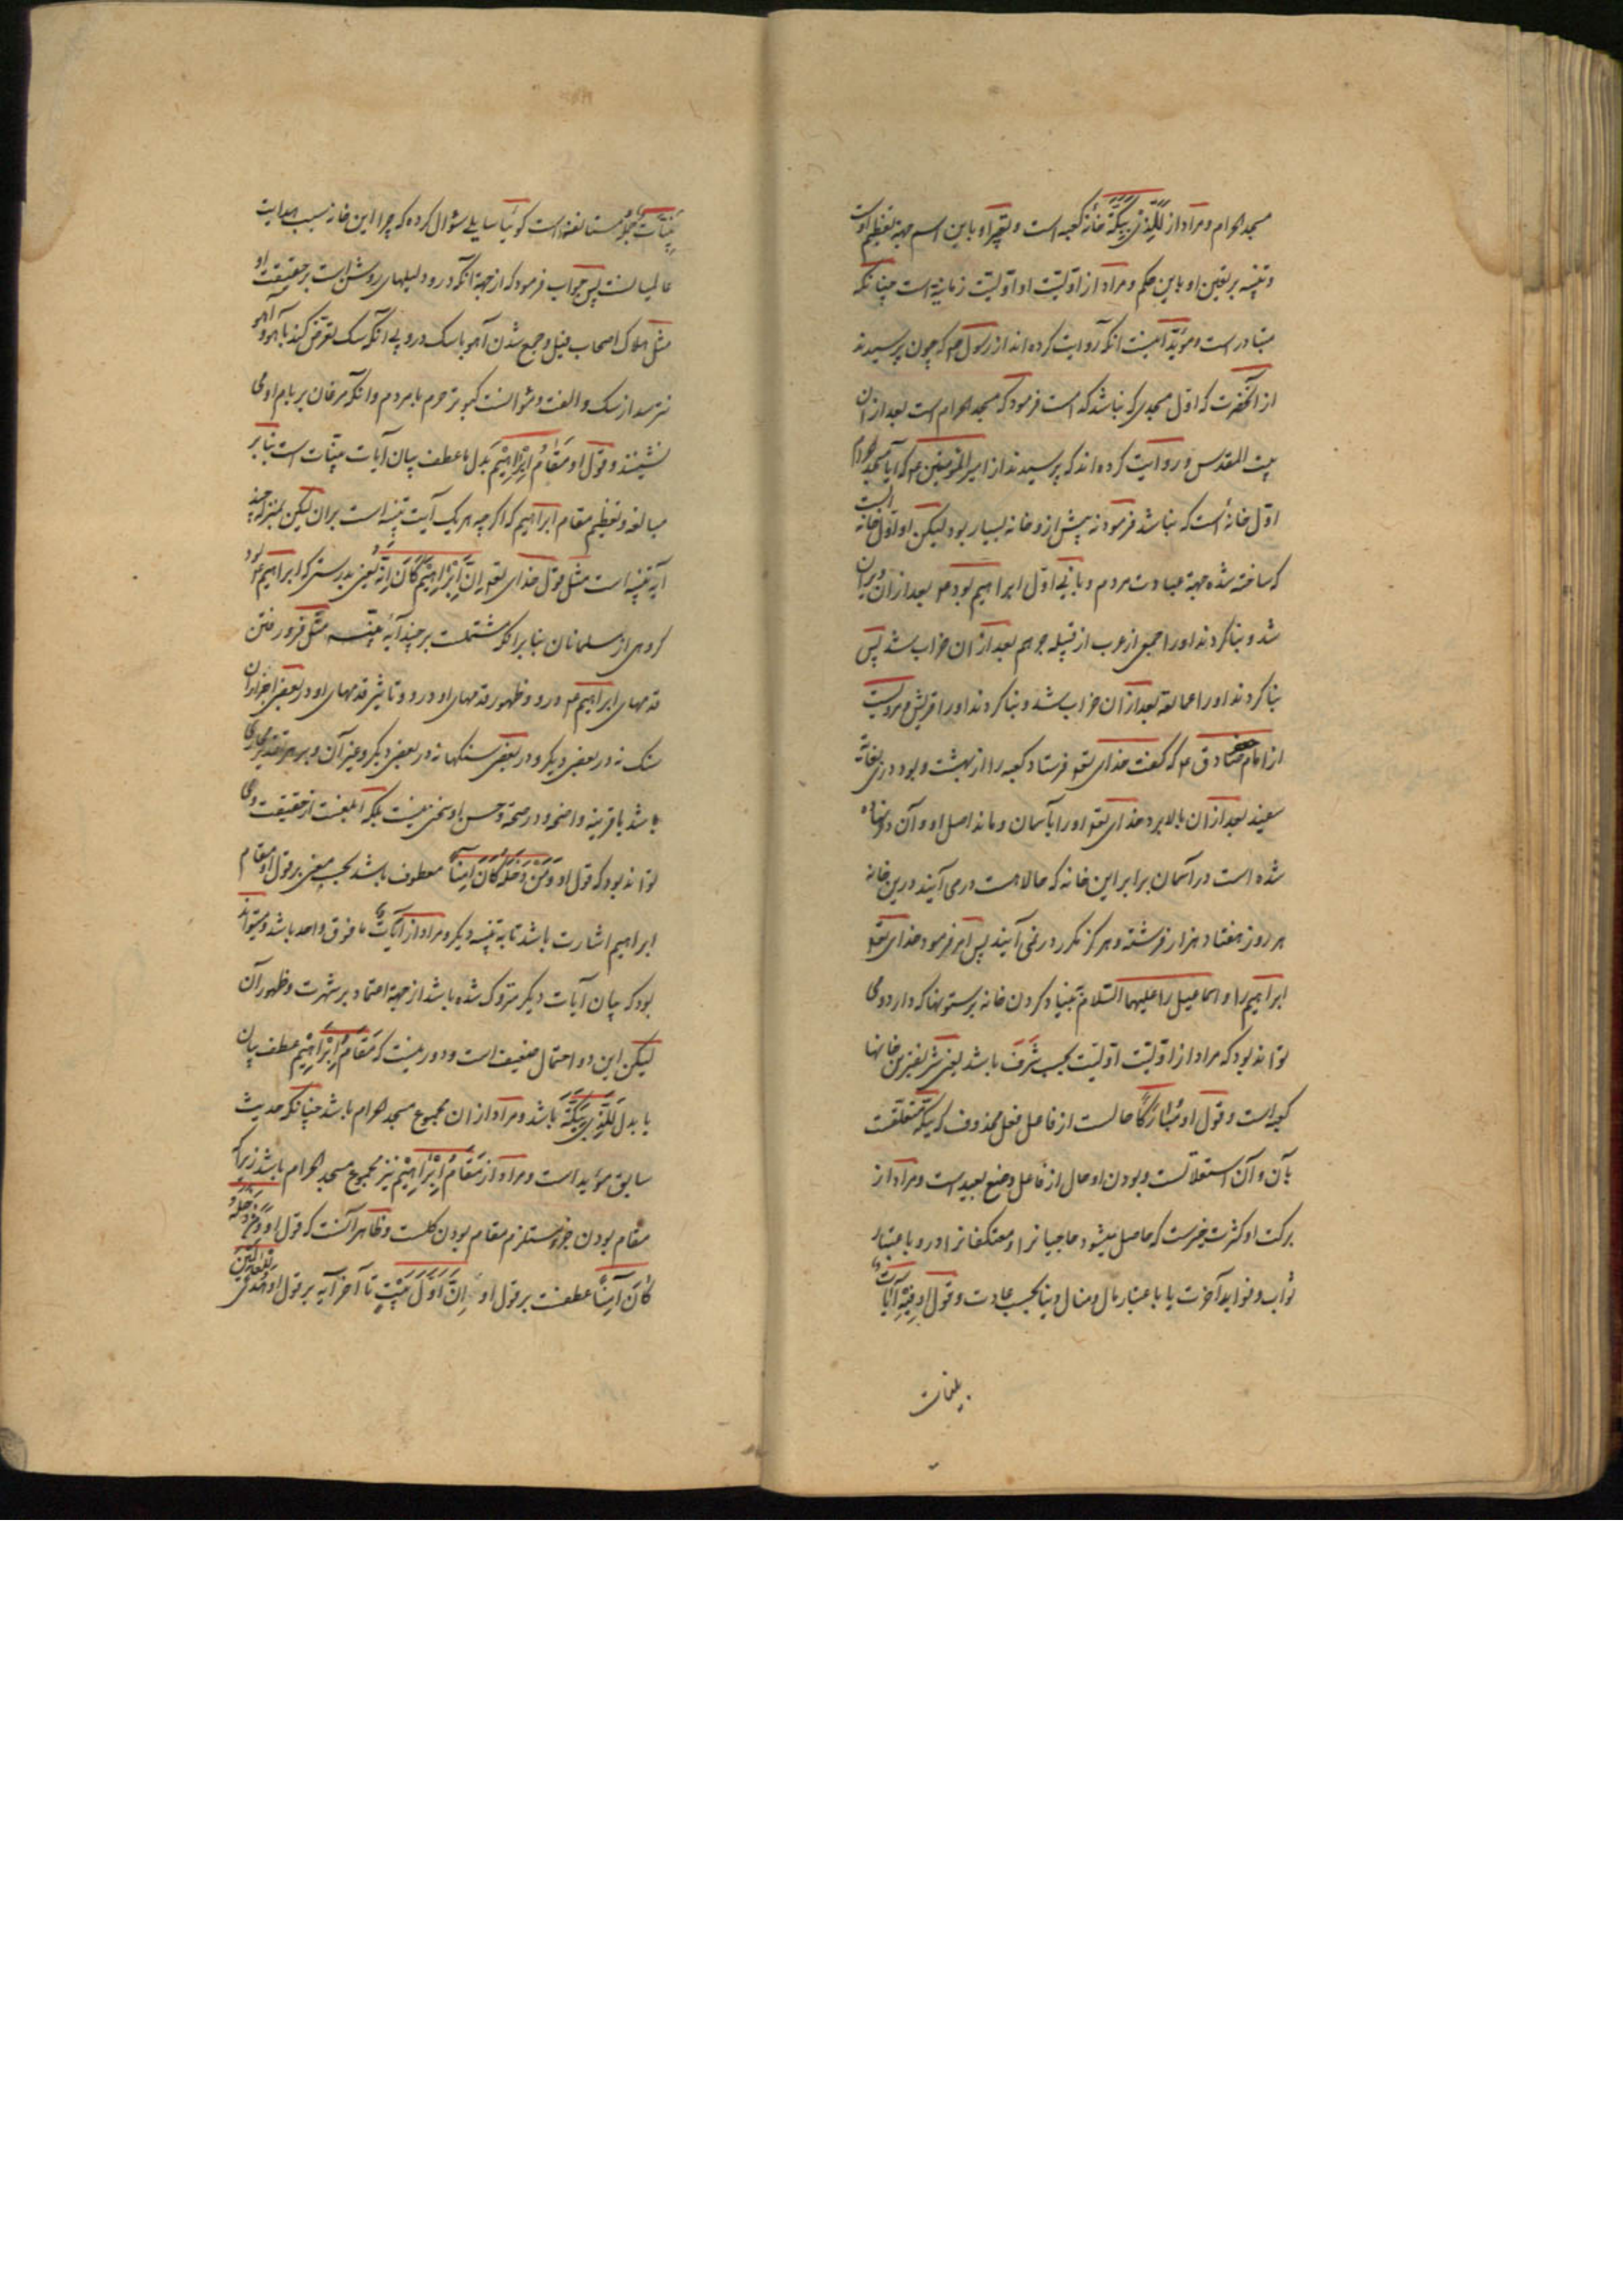 مسجد الحرام و مراد از لَلَّذِی بِبَکَّةَ خانهٔ کعبه است و تعبیر او باین اسم جهة تعظیم اوست
و تنبیه بر تعین او باین حکم و مراد از اوّلیّت او اوّلیّت زمانیة است چنانکه
متبادر است و مؤیّد اینست انکه روایت کرده اند از رسول صم که چون پرسیدند
از آنحضرت که اوّل مسجدی که بنا شد که است فرمود که مسجد الحرام است بعد از ان
بیت المقدس و روایت کرده اند که پرسیدند از امیر المؤمنین ع م که ایا مسجد الحرام
اوّل خانهٔ است که بنا شد فرمود نه پیش ازو خانه بسیار بود لیکن او اوّل خانه است
که ساخته شده جهة عبادت مردم و بانی اوّل ابراهیم بود ع م بعد از ان ویران
شد و بنا کردند او را جمعی از عرب از قبیله جرهم بعد از ان خراب شد پس
بنا کردند او را عمالقه بعد از ان خراب شد و بنا کردند او را قریش مرویست
از امام جعفر صادق ع م که گفت خدای تعو فرستاد کعبه را از بهشت و بود دری بغایة
سفید بعد از ان بالا برد خدای تعو او را بآسمان و ماند اصل او و آن در نهاده
شده است در آسمان برابر این خانه که حالا هست در می آیند درین خانه
هر روز هفتاد هزار فرشته و هرکز مکرر در نمی آیند پس امر فرمود خدای تعو
ابراهیم را و اسماعیل را علیهما السّلام ببنیاد کردن خانه بر ستونها که دارد و می
تواند بود که مراد از اوّلیّت اوّلیّت بحسب شَرَف باشد یعنی شریفترین خانها
کعبه است و قول او مُبَارَکًا حالست از فاعل فعل محذوف که ببکّة متعلقست
بآن و آن استقلالست و بودن او حال از فاعل وضع بعید است و مراد از
برکت او کثرت خیرست که حاصل میشود حاجیانرا و معتکفانرا درو باعتبار
ثواب و فواید آخرت یا باعتبار مال و منال دنیا بحسب عادت و قول او فِیْهِ آیَاتٌ
بینات
بَیِّنَاتٌ جملهٔ مستانفه است کوئیا سایلی سؤال کرده که چرا این خانه سبب هدایت
عالمیانست پس جواب فرمود که از جهة انکه درو دلیلهای روشن است بر حقیقت او
مثل هلاک اصحاب فیل و جمع شدن آهو با سک درو بی آنکه سک تعرّض کند بآهو و آهو
نترسد از سک و الفت و مؤانست کبوتر حرم با مردم و انکه مرغان بر بام او می
نشینند و قول او مَقَامُ اِبْرَاهِیْمَ بدل یا عطف بیان آیات بیّنات است بنابر
مبالغه و تعظیم مقام ابراهیم که اکرچه هر یک آیت بیّنه است بران لیکن بمنزلهٔ چند
آیه بیّنه است مثل قول خدای تعو اِنَّ اِبْرَاهِیْمَ کَانَ اُمَّةً یعنی بدرستی که ابراهیم ع م بود
کروهی از مسلمانان بنابر انکه مشتملست بر چند آیهٔ بیّنه مثل فرو رفتن
قدمهای ابراهیم ع م درو و ظهور قدمهای او درو و تاثیر قدمهای او در بعضی اجزاء ان
سنک نه در بعضی دیکر و در بعضی سنکها نه در بعضی دیکر و غیر آن و بر هر تقدیر مجاز می
باشد با قرینه واضحه و در صحّة و حسن او سخن نیست بلکه ابلغست از حقیقت و می
تواند بود که قول او وَمَنْ دَخَلَهُ کَانَ اٰمِنًا معطوف باشد بحسب معنی بر قول او مقام
ابراهیم اشارت باشد تا بیّنه دیکر و مراد از آیَاتٌ ما فوق واحد باشد و میتواند
بود که بیان آیات دیکر متروک شده باشد از جهة اعتماد بر شهرت و ظهور آن
لیکن این دو احتمال ضعیف است و دور نیست که مَقَامُ اِبْرَاهِیْمَ عطف بیان
یا بدل لَلَّذِی بِبَکَّةَ باشد و مراد از ان مجموع مسجد الحرام باشد چنانکه حدیث
سابق مؤید است و مراد از مَقَامُ اِبْرَاهِیْمَ نیز مجموع مسجد الحرام باشد زیراکه
مقام بودن جزو مستلزم مقام بودن کلست و ظاهر آنست که قول او وَمَنْ دَخَلَهُ
کَانَ اٰمِنًا عطفست بر قول او اِنَّ اَوَّلَ بَیْتٍ تا آخر آیه بر قول او هُدًی لِلْعَالَمِیْنَ